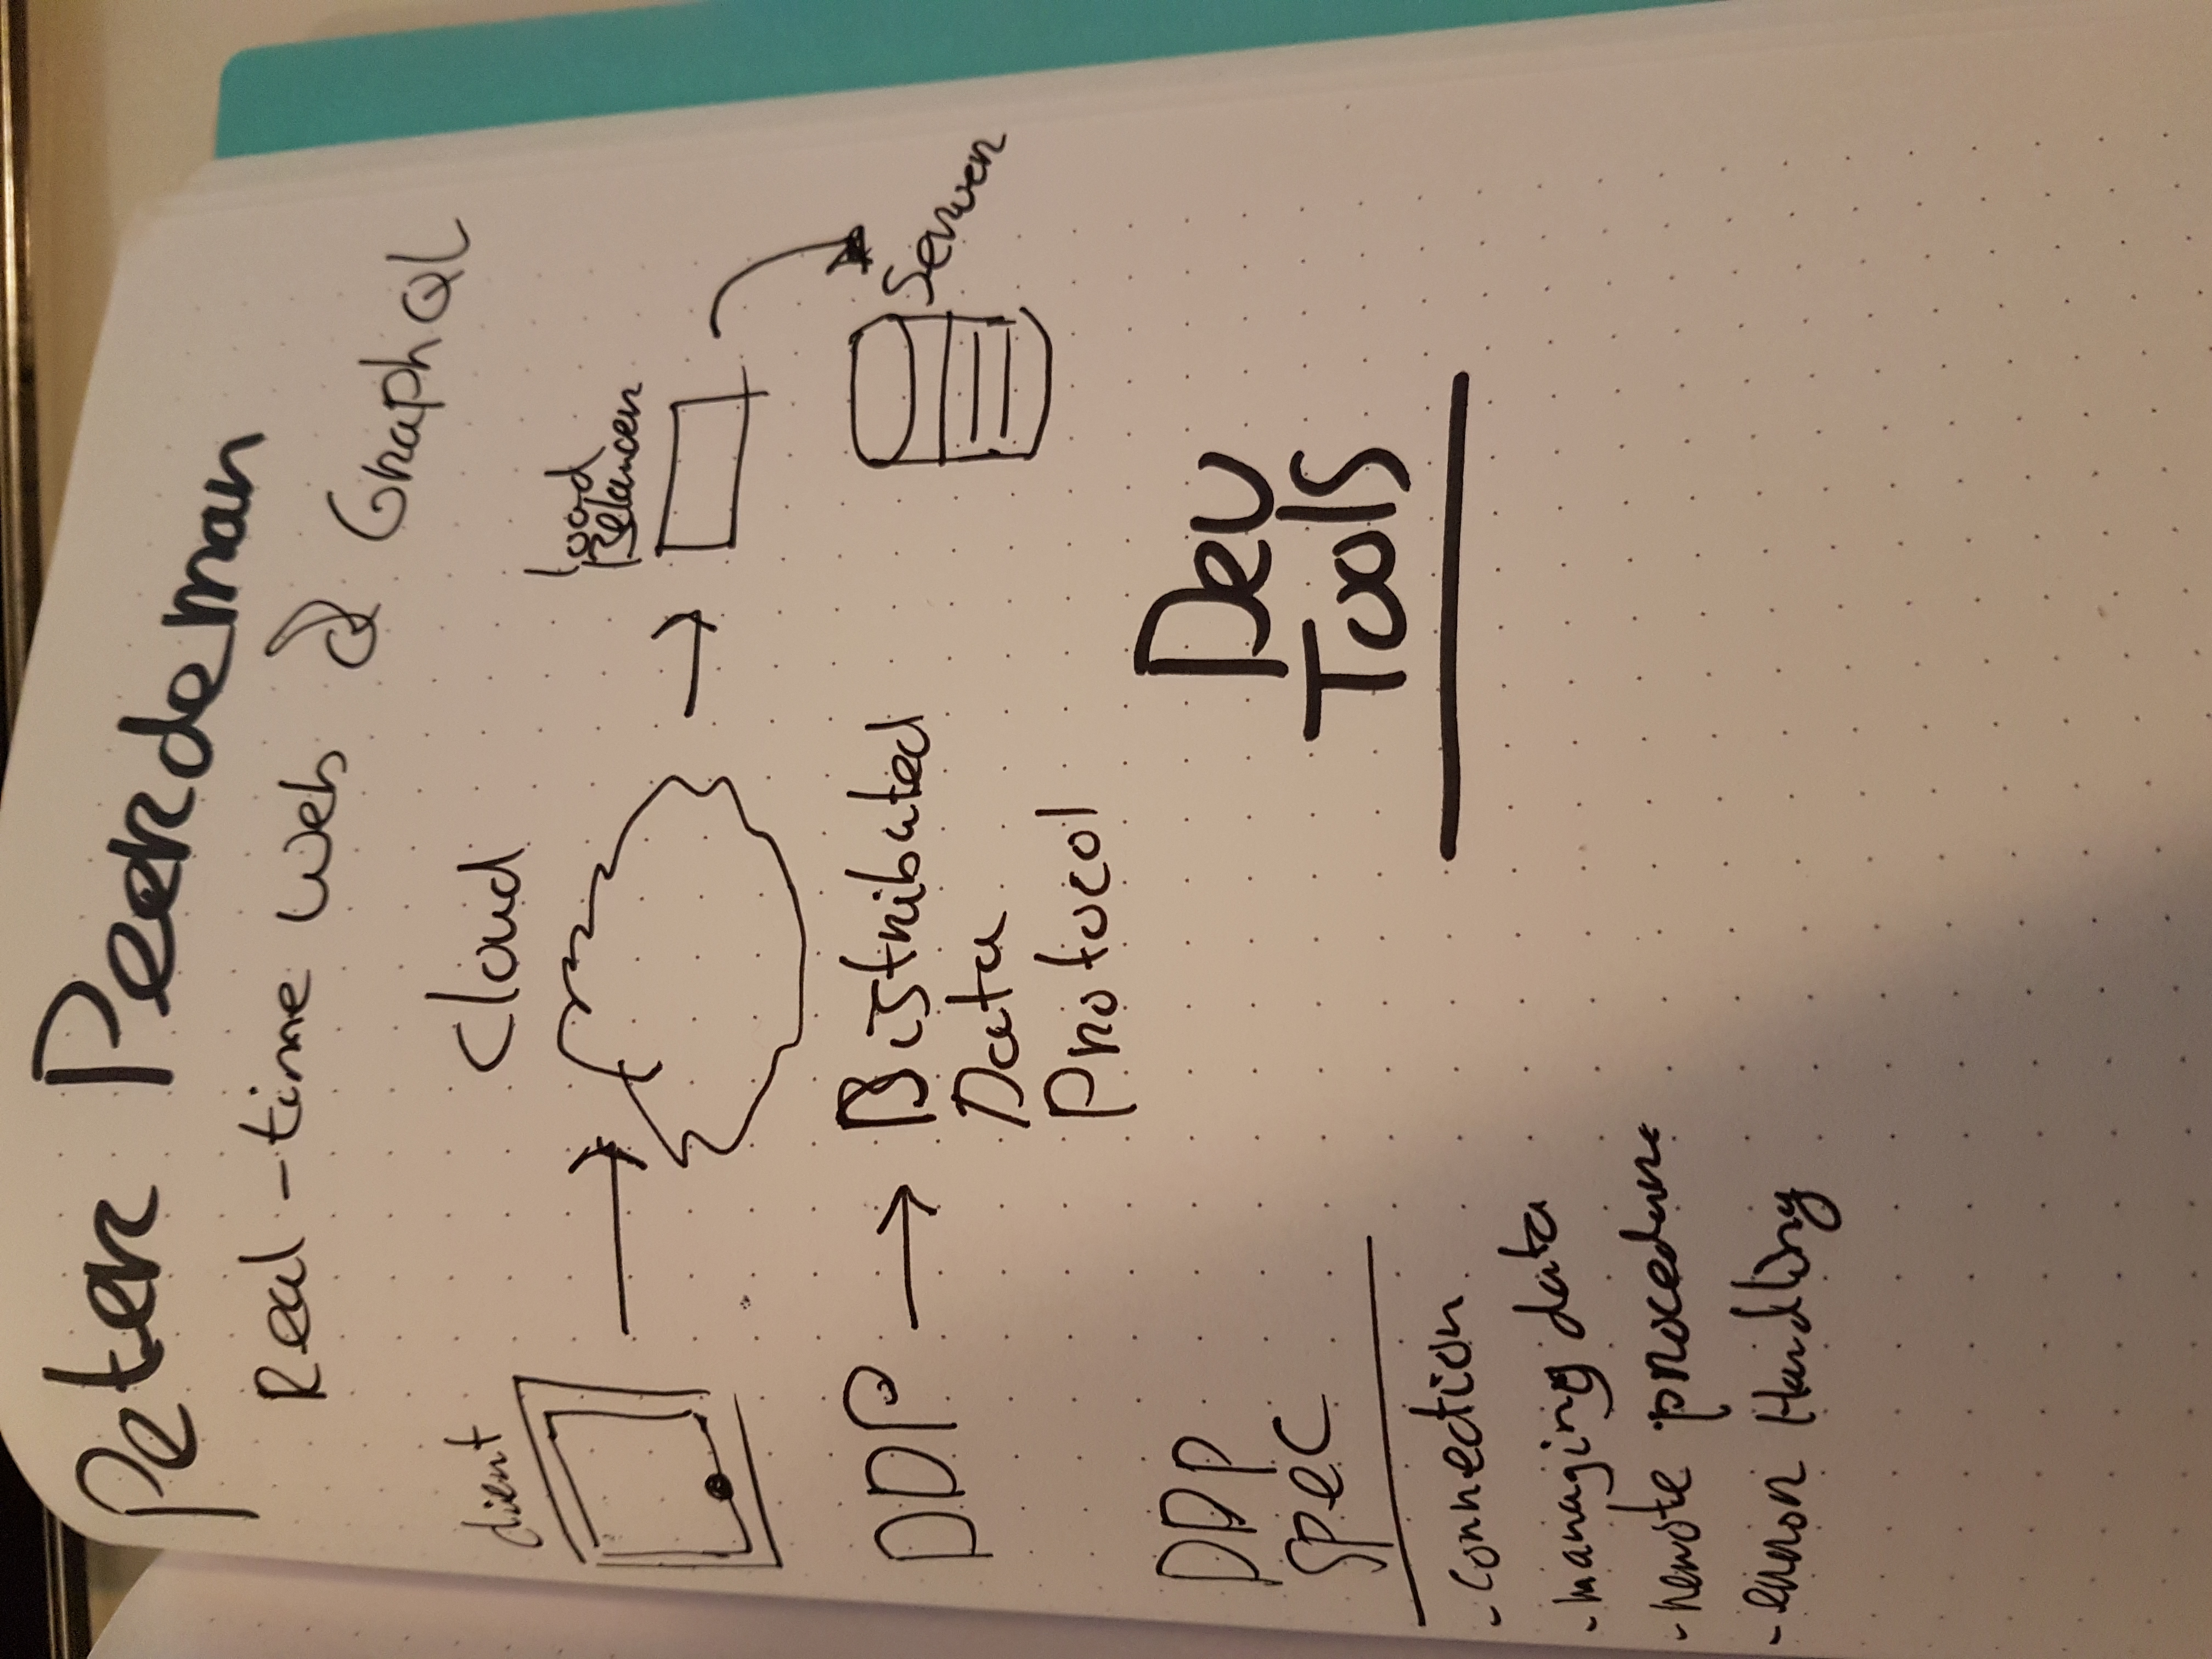 Peter Peerdeman
Real-time Web & GraphQL
client
Cloud
Load
Balancer
Server
DDP → Distributed
Data
Protocol
DDP
Spec
Dev
Tools
- connection
- managing data
- remote procedure
- error Handling